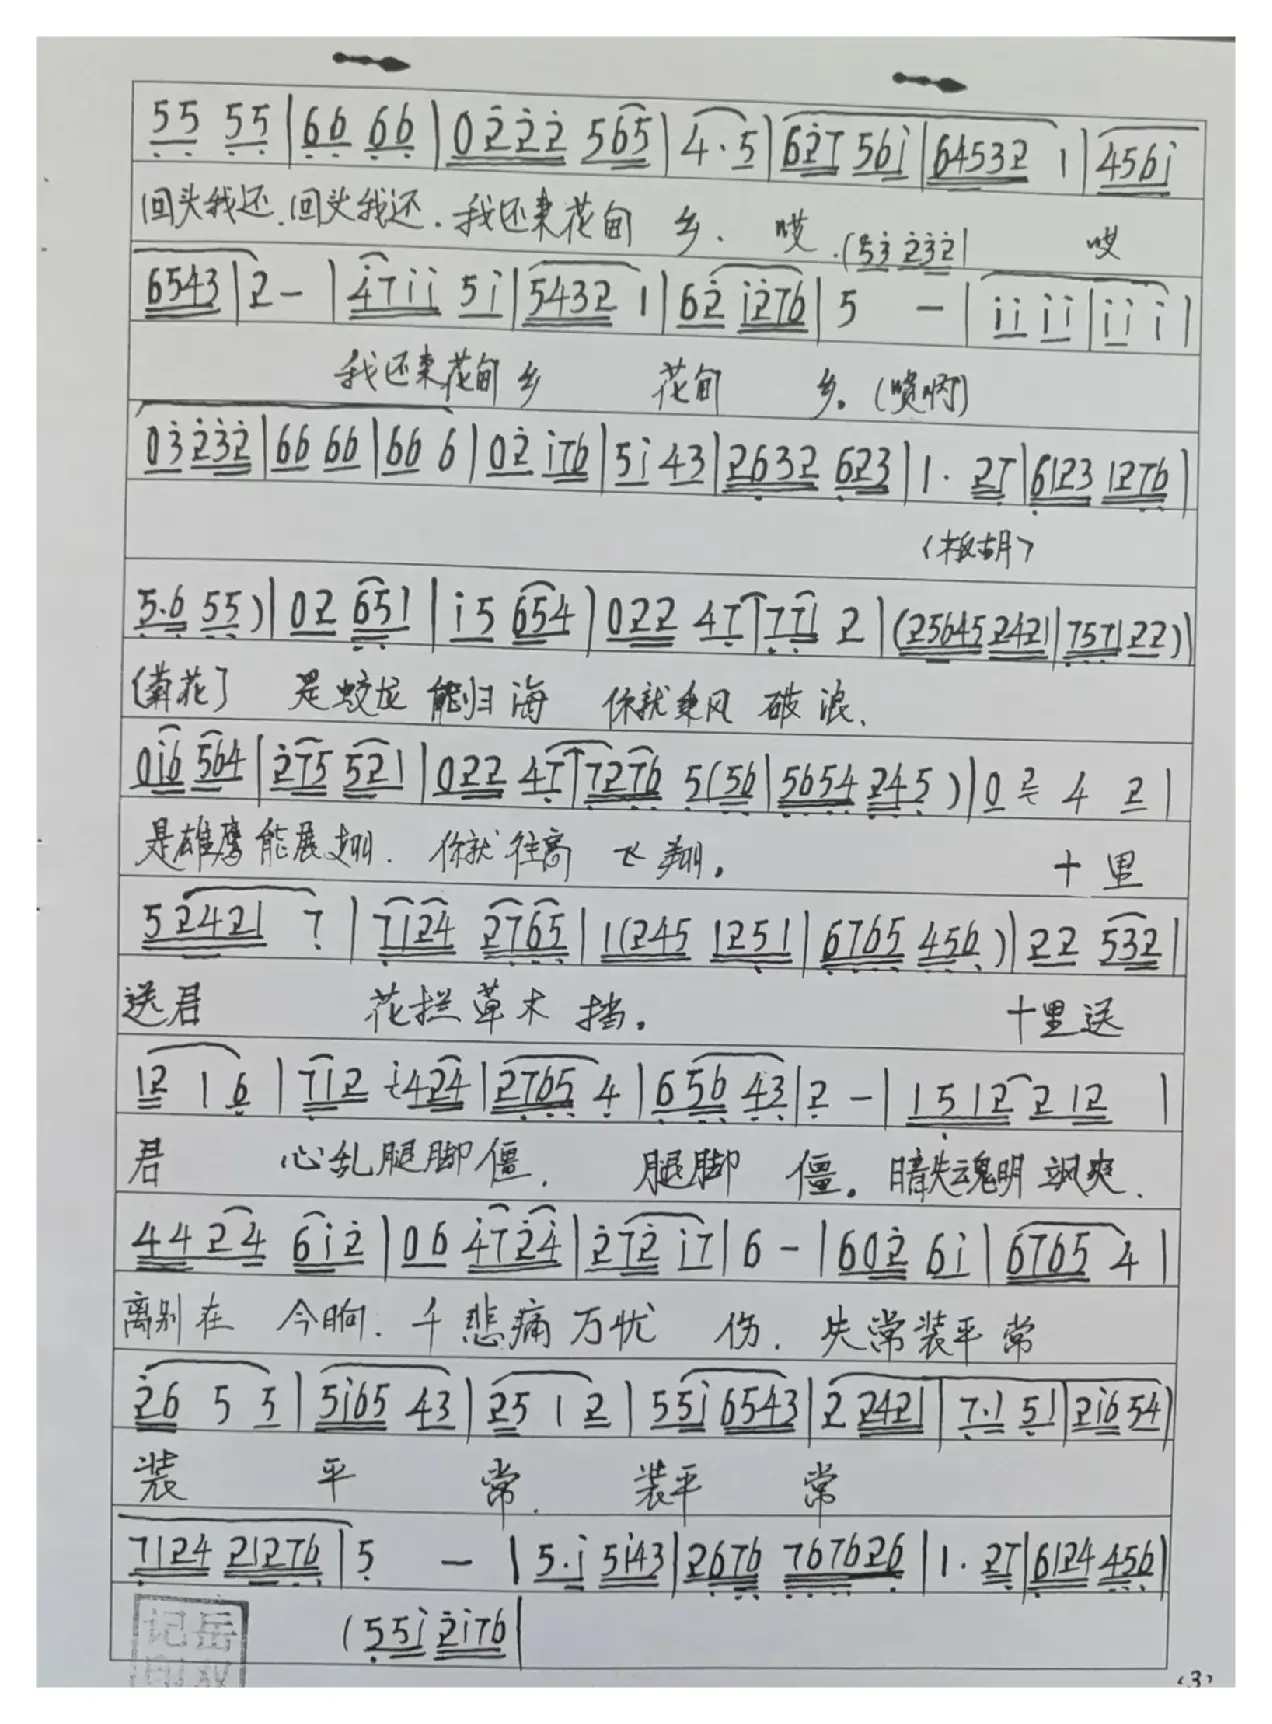 55 55 | 66 66 | 02̇2̇2̇ 565 | 4·5 | 62̇7 56i | 64532 1 | 456i
回头我还.回头我还.我还来花甸 乡. 哎.(53̇ 2̇3̇2̇| 哎
6543 | 2 - | 4̇7ii 5i | 5432 1 | 62̇ i2̇76 | 5 - | ii ii | ii i |
我还来花甸乡 花甸 乡。(唢呐)
03̇ 2̇3̇2̇ | 66 66 | 66 6 | 02̇ i76 | 5i 43 | 2632 623 | 1· 27 | 6123 1276 |
(板胡)
5·6 55) | 02 651 | i5 654 | 022 47 | 771 2 | (25645 2421 | 7571 22) |
(菊花) 是蛟龙能归海 你就乘风破浪.
0i6 564 | 2̇75 521 | 022 47 | 7276 5(56 | 5654 245) | 0 2 4 2 |
是雄鹰能展翅. 你就往高飞翔。 十里
52421 7 | 7124 2765 | 1(245 1251 | 6765 456) | 22 532 |
送君 花拦草木挡。 十里送
12 1 6 | 712 424 | 2765 4 | 656 43 | 2 - | 1512 212 |
君 心乱腿脚僵. 腿脚 僵。暗失魂明飒爽.
44 24 6i2̇ | 06 4̇72̇4̇ | 2̇72̇ i7 | 6 - | 602̇ 6i | 6765 4 |
离别在 今晌. 千悲痛万忧 伤. 失常装平常
2̇6 5 5 | 5i65 43 | 25 1 2 | 55i 6543 | 2 2421 | 7·1 51 | 2i654 |
装 平 常. 装平 常
7124 21276 | 5 - | 5·i 5i43 | 2676 767626 | 1· 27 | 6124 456 |
(55i 2̇i76 |
记岳
(3)